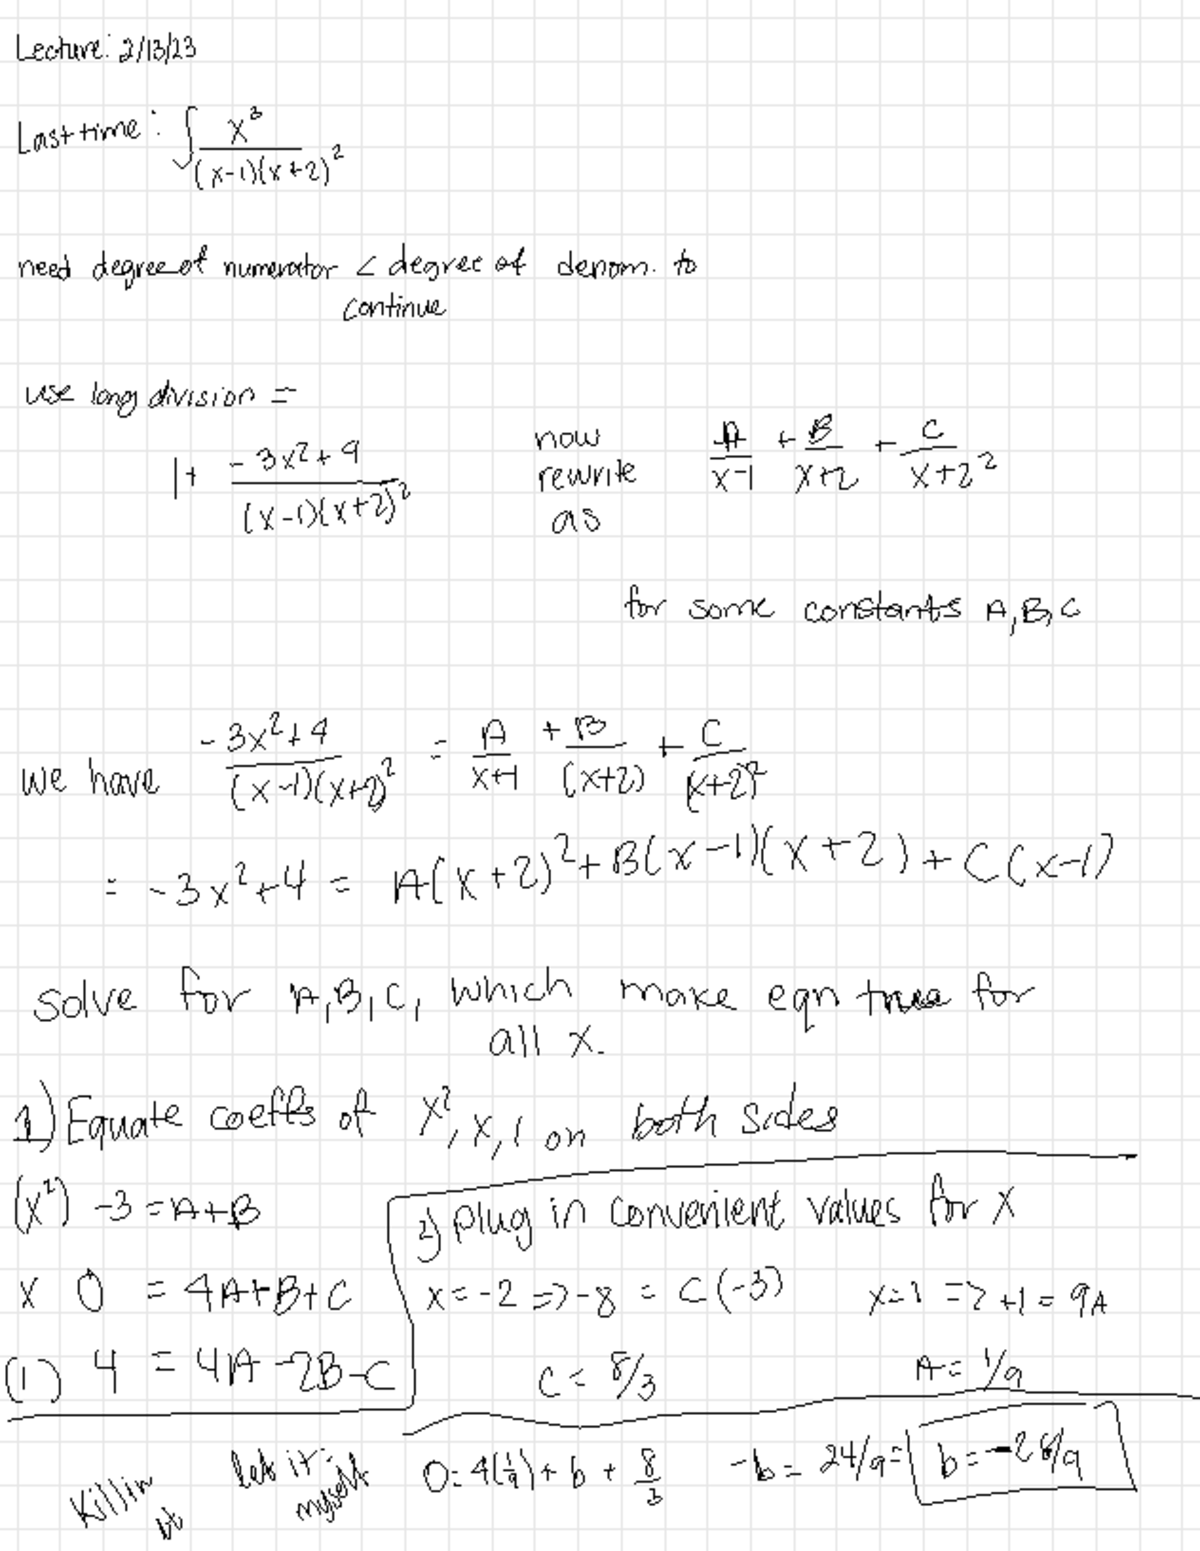 Lecture: 2/13/23
Last time: ∫ x³ / (x-1)(x+2)²
need degree of numerator < degree of denom. to
continue
use long division =
1 + (-3x²+4) / (x-1)(x+2)² now rewrite as A/(x-1) + B/(x+2) + C/x+2²
for some constants A, B, C
we have (-3x²+4) / (x-1)(x+2)² = A/(x+1) + B/(x+2) + C/(x+2)²
= -3x²+4 = A(x+2)² + B(x-1)(x+2) + C(x-1)
solve for A, B, C, which make eqn true for
all x.
1) Equate coeffs of x², x, 1 on both sides
(x²) -3 = A+B
x 0 = 4A+B+C
(1) 4 = 4A-2B-C
2) plug in convenient values for x
x=-2 => -8 = C(-3) x=1 => +1 = 9A
C = 8/3 A = 1/9
Killin it
let it: myself
0 = 4(1/9) + b + 8/3 -b = 24/9 = b = -28/9